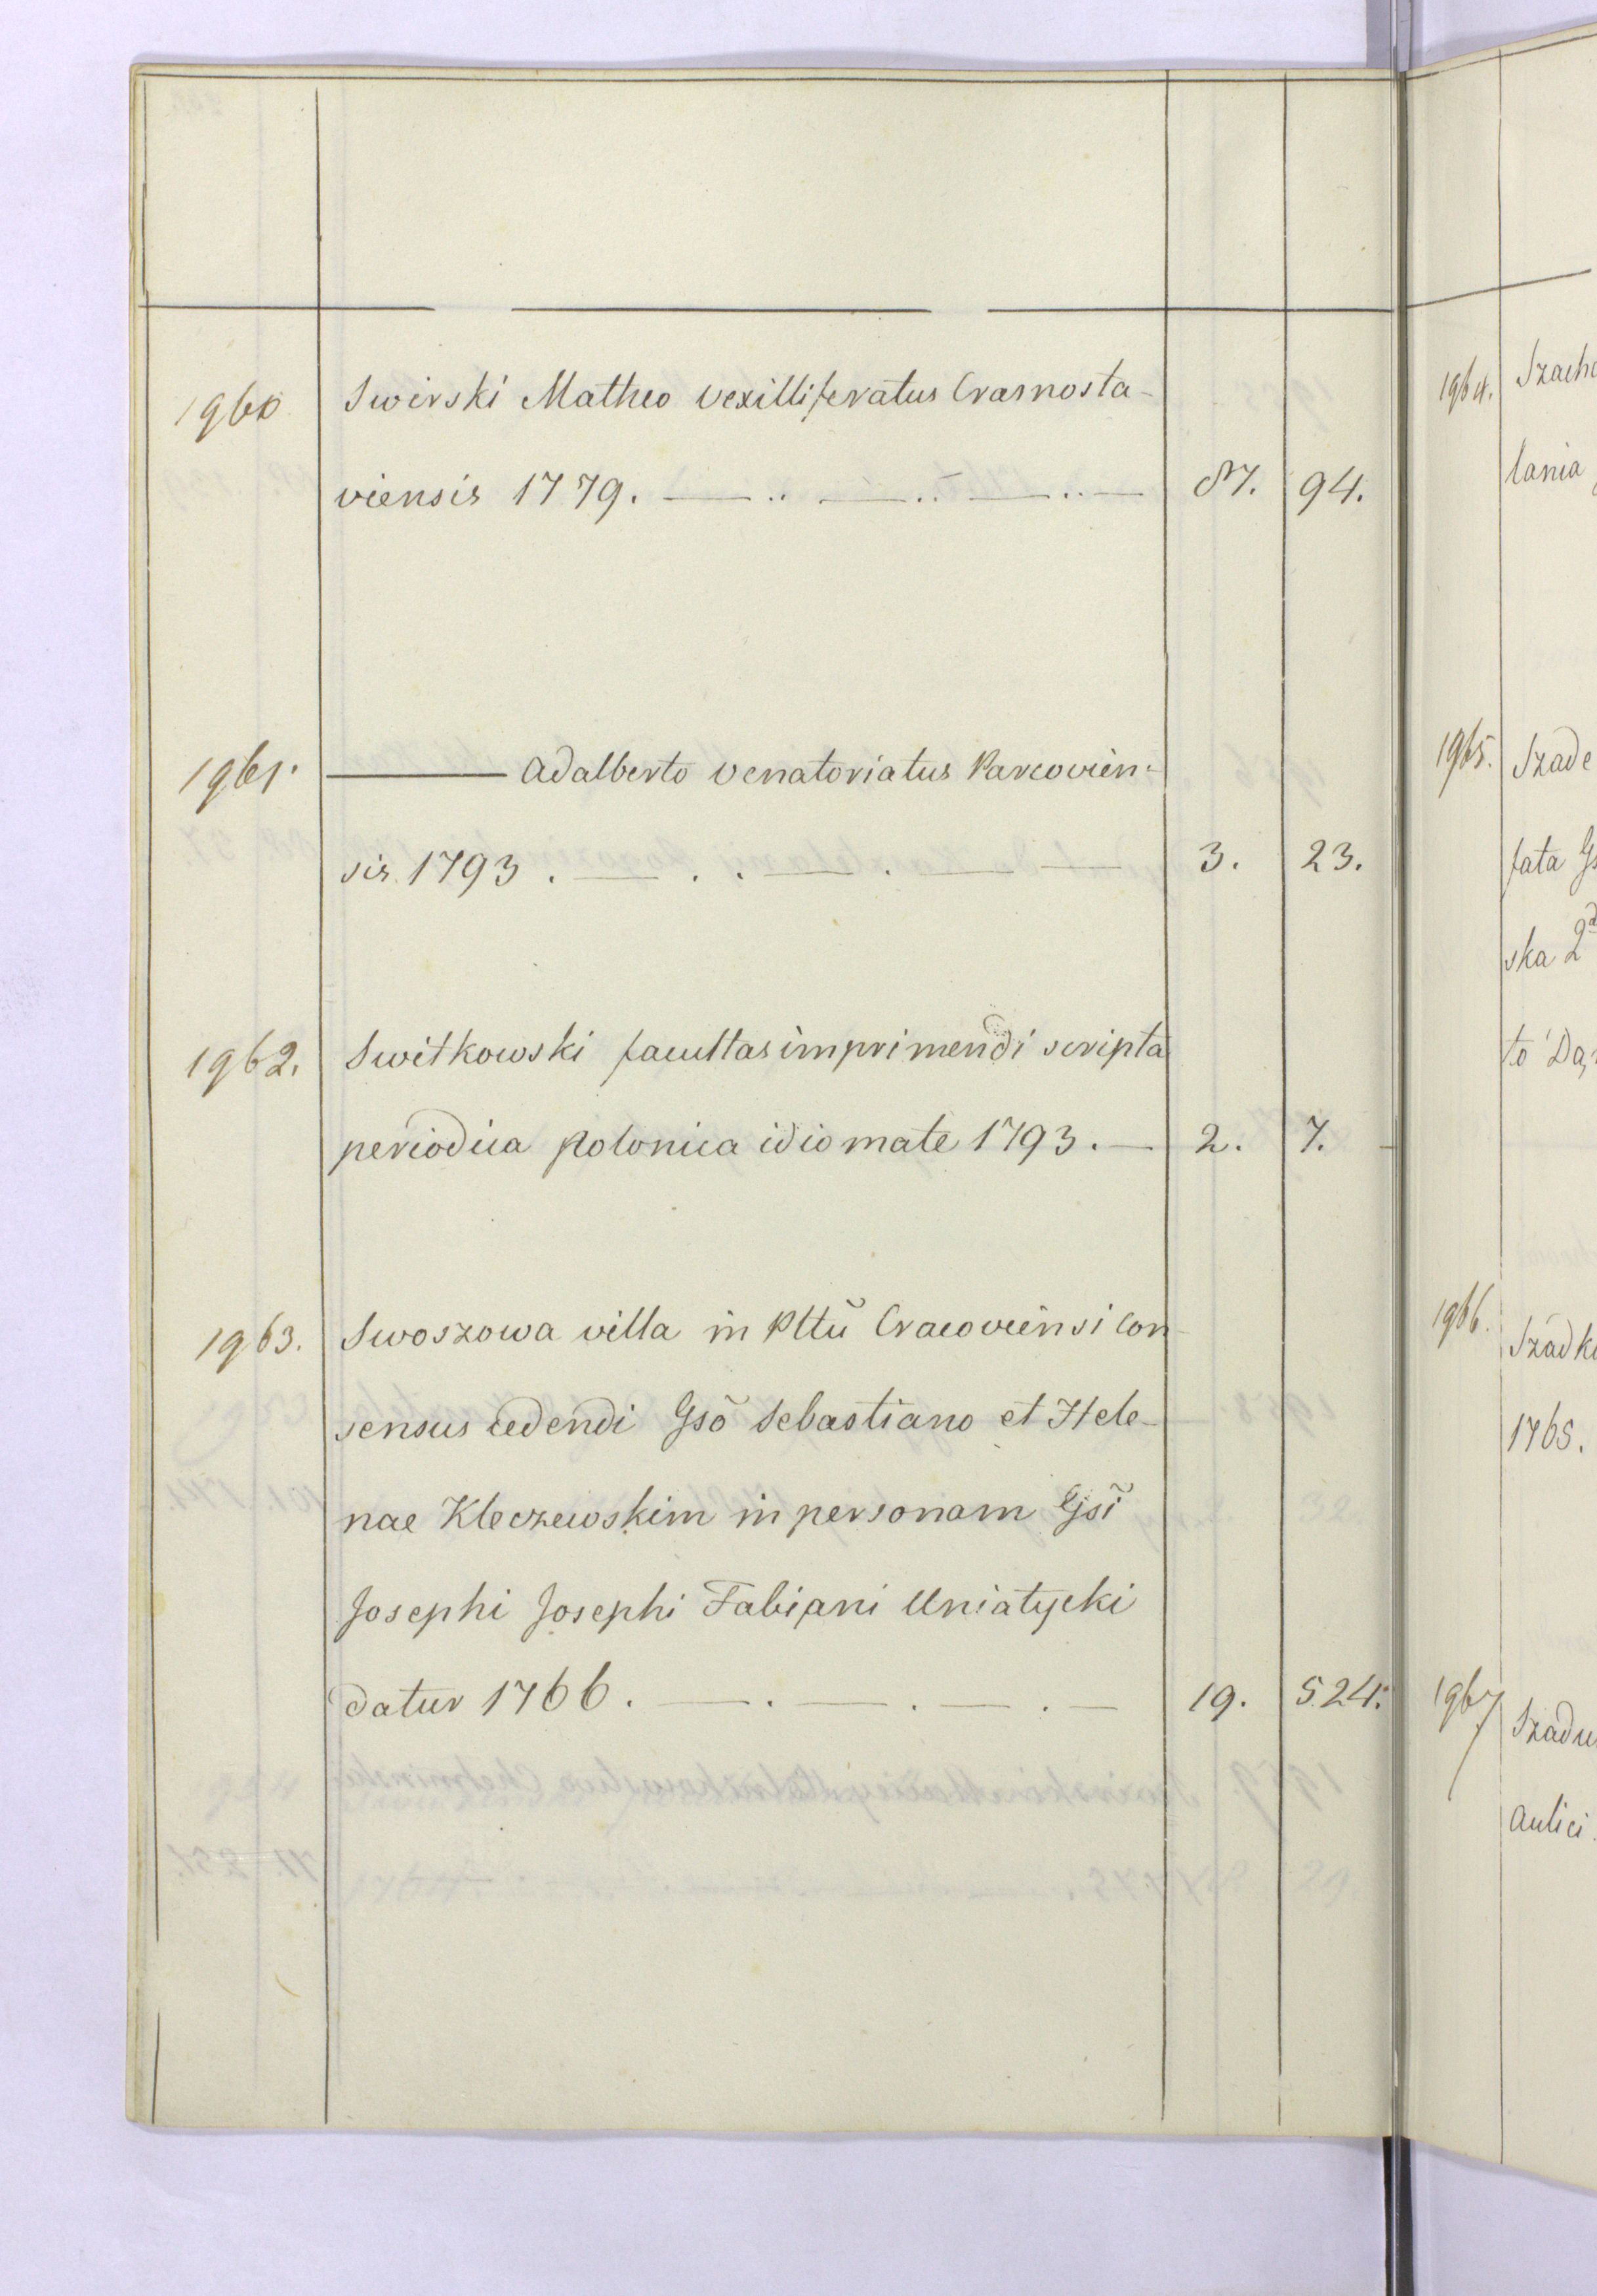 1960 Swirski Matheo vexilliferatus Crasnosta-
viensis 1779. — .. — .. — .. — 87. 94.
1961. ——— Adalberto venatoriatus Parcovien-
sis 1793 . — . . — . — — 3. 23.
1962. Switkowski facultas imprimendi scripta
periodica polonica idiomate 1793. — 2. 7.
1963. Swoszowa villa in Plttũ Cracoviensi con
sensus cedendi Gsõ Sebastiano et Hele-
nae Kleczewskim in personam Gsĩ
Josephi Josephi Fabiani Uniatycki
datur 1766. — . — . — . — 19. 524.
1964. Szach
lania
1965. Szade
fata Gs
ska 2
to Da
1966. Szadk
1765.
1967 Szadu
Aulici